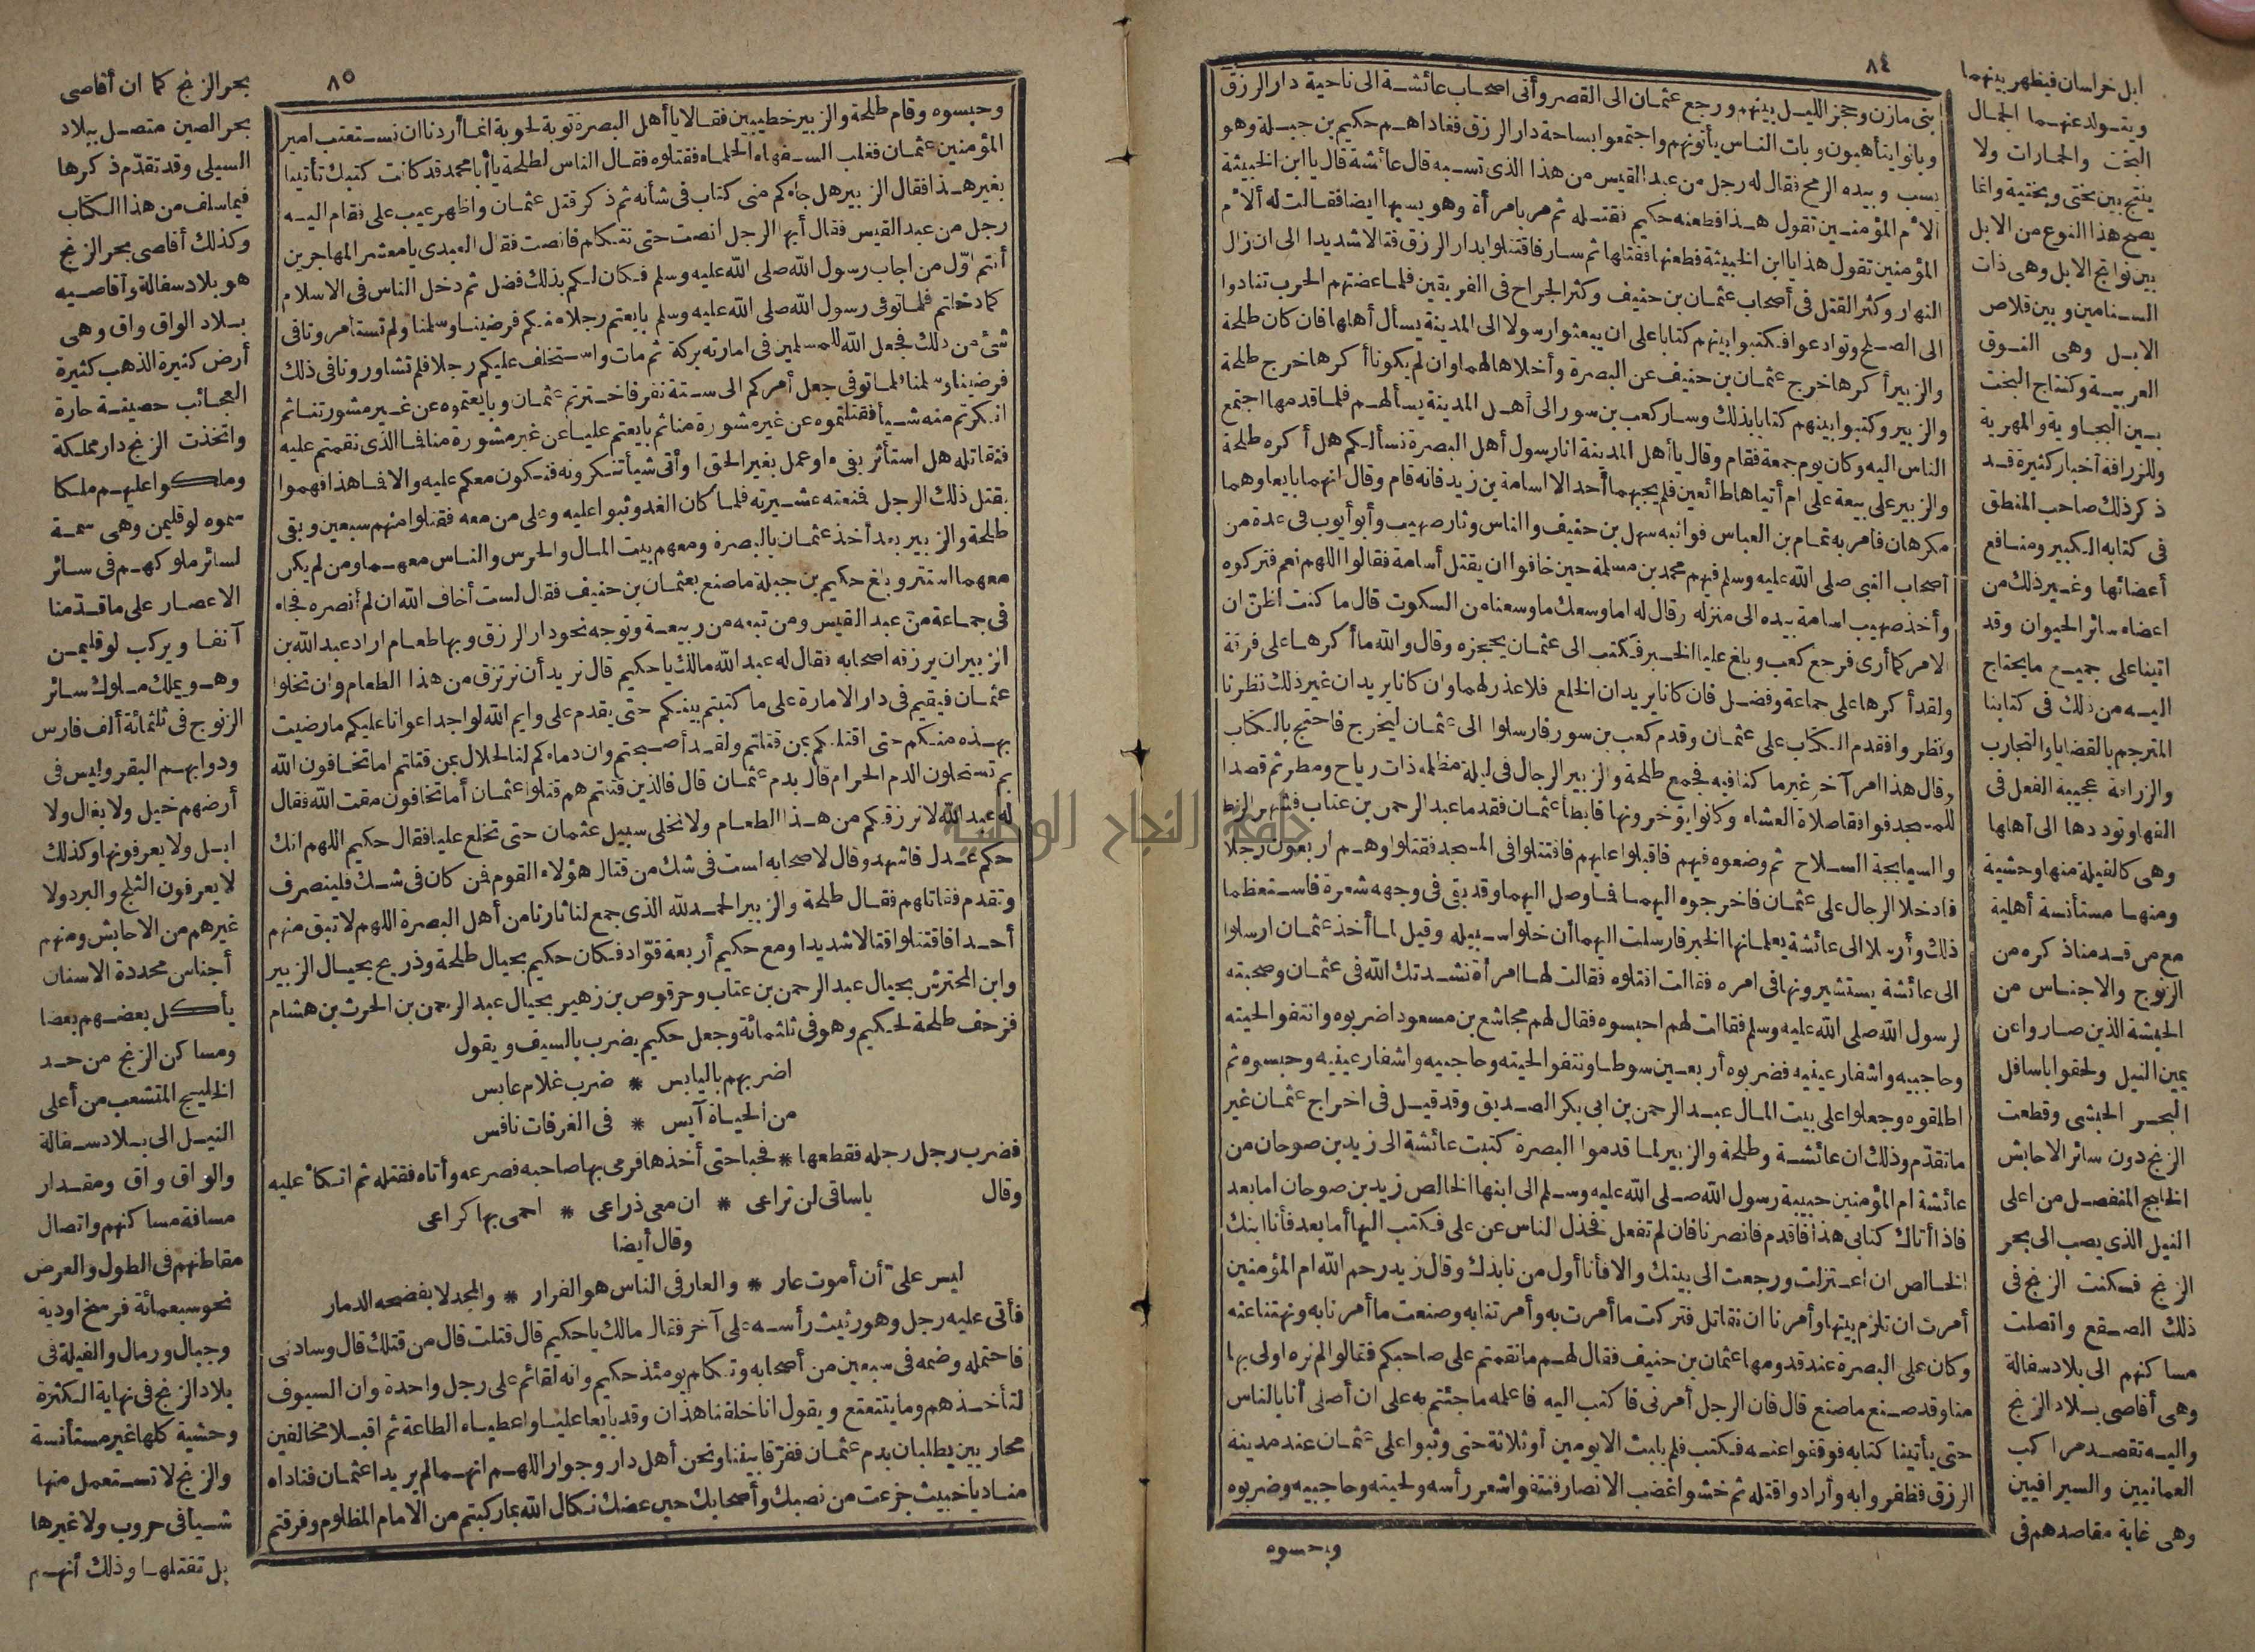 ٨٤
بنى مازن وحجز الليل بينهم ورجع عثمان الى القصر وأتى اصحاب عائشة الى ناحية دار الرزق
وباتوا يتأهبون وبات الناس يأتونهم واجتمعوا بساحة دار الرزق فغاداهم حكيم بن جبلة وهو
يسب وبيده الرمح فقال له رجل من عبد القيس من هذا الذى تسبه قال عائشة قال يا ابن الخبيثة
ألأم المؤمنين تقول هذا فطعنه حكيم فقتله ثم مر بامرأة وهو يسبها ايضا فقالت له ألأم
المؤمنين تقول هذا يا ابن الخبيثة فطعنها فقتلها ثم سار فاقتتلوا بدار الرزق قتالا شديدا الى ان زال
النهار وكثر القتل فى أصحاب عثمان بن حنيف وكثر الجراح فى الفريقين فلما عضتهم الحرب تنادوا
الى الصلح وتوادعوا فكتبوا بينهم كتابا على ان يبعثوا رسولا الى المدينة يسأل أهلها فان كان طلحة
والزبير أكرها خرج عثمان بن حنيف عن البصرة وأخلاها لهما وان لم يكونا أكرها خرج طلحة
والزبير وكتبوا بينهم كتابا بذلك وسار كعب بن سور الى أهل المدينة يسألهم فلما قدمها اجتمع
الناس اليه وكان يوم جمعة فقام وقال يا أهل المدينة انا رسول أهل البصرة نسألكم هل أكره طلحة
والزبير على بيعة على ام أتياها طائعين فلم يجبهما أحد الا اسامة بن زيد فانه قام وقال انهما بايعا وهما
مكرهان فامر به تمام بن العباس فواثبه سهل بن حنيف والناس وثار صهيب وأبو أيوب فى عدة من
أصحاب النبى صلى الله عليه وسلم فيهم محمد بن مسلمة حين خافوا ان يقتل أسامة فقالوا اللهم نعم فتركوه
وأخذ صهيب اسامة بيده الى منزله وقال له اما وسعك ما وسعنا من السكوت قال ما كنت اظن ان
الامر كما أرى فرجع كعب وبلغ عليا الخبر فكتب الى عثمان يعجزه وقال والله ما أكرها على فرقة
ولقد أكرها على جماعة وفضل فان كانا يريدان الخلع فلا عذر لهما وان كانا يريدان غير ذلك نظرنا
ونظروا فقدم الكتاب على عثمان وقدم كعب بن سور فارسلوا الى عثمان ليخرج فاحتج بالكتاب
وقال هذا امر آخر غير ما كنا فيه فجمع طلحة والزبير الرجال فى ليلة مظلمة ذات رياح ومطر ثم قصدا
المسجد فوافقا صلاة العشاء وكانوا يؤخرونها فابطأ عثمان فقدما عبد الرحمن بن عتاب فشهر الزط
والسيابجة السلاح ثم وضعوه فيهم فاقبلوا عليهم فاقتتلوا فى المسجد فقتلوا وهم اربعون رجلا
فادخلا الرجال على عثمان فاخرجوه اليهما فلما وصل اليهما وقد بقى فى وجهه شعرة فاستعظما
ذلك وأرسلا الى عائشة يعلمانها الخبر فارسلت اليهما أن خلوا سبيله وقيل لما أخذ عثمان ارسلوا
الى عائشة يستشيرونها فى امره فقالت اقتلوه فقالت لها امرأة نشدتك الله فى عثمان وصحبته
لرسول الله صلى الله عليه وسلم فقالت لهم احبسوه فقال لهم مجاشع بن مسعود اضربوه وانتفوا لحيته
وحاجبيه واشفار عينيه فضربوه أربعين سوطا ونتفوا لحيته وحاجبيه واشفار عينيه وحبسوه ثم
اطلقوه وجعلوا على بيت المال عبد الرحمن بن ابى بكر الصديق وقد قيل فى اخراج عثمان غير
ما تقدم وذلك ان عائشة وطلحة والزبير لما قدموا البصرة كتبت عائشة الى زيد بن صوحان من
عائشة ام المؤمنين حبيبة رسول الله صلى الله عليه وسلم الى ابنها الخالص زيد بن صوحان اما بعد
فاذا أتاك كتابى هذا فاقدم فانصرنا فان لم تفعل فخذل الناس عن على فكتب اليها أما بعد فأنا ابنك
الخالص ان اعتزلت ورجعت الى بيتك والا فأنا أول من نابذك وقال زيد رحم الله ام المؤمنين
أمرت ان تلزم بيتها وأمرنا ان نقاتل فتركت ما أمرت به وأمرتنا به وصنعت ما أمرنا به ونهتنا عنه
وكان على البصرة عند قدومها عثمان بن حنيف فقال لهم ما نقمتم على صاحبكم فقالوا لم نره اولى بها
منا وقد صنع ما صنع قال فان الرجل أمرنى فاكتب اليه فاعلمه ما جئتم به على ان أصلى أنا بالناس
حتى يأتينا كتابه فوقفوا عنه فكتب فلم يلبث الا يومين أو ثلاثة حتى وثبوا على عثمان عند مدينة
الرزق فظفروا به وأرادوا قتله ثم خشوا غضب الانصار فنتفوا شعر رأسه ولحيته وحاجبيه وضربوه
وحبسوه
ابل خراسان فيظهر بينهما
ويتولد عنهما الجمال
البخت والجمازات ولا
ينتج بين بختى وبختية وانما
يصح هذا النوع من الابل
بين نوائج الابل وهى ذات
السنامين وبين قلاص
الابل وهى النوق
العربية وكنتاج البخت
بين البجاوية والمهرية
وللزرافة أخبار كثيرة قد
ذكر ذلك صاحب المنطق
فى كتابه الكبير ومنافع
أعضائها وغير ذلك من
اعضاء سائر الحيوان وقد
اتينا على جميع ما يحتاج
اليه من ذلك فى كتابنا
المترجم بالقضايا والتجارب
والزرافة عجيبة الفعل فى
الفها وتوددها الى أهلها
وهى كالفيلة منها وحشية
ومنها مستأنسة أهلية
مع من قدمنا ذكره من
الزنوج والاجناس من
الحبشة الذين صاروا عن
يمين النيل ولحقوا باسافل
البحر الحبشى وقطعت
الزنج دون سائر الاحابش
الخليج المنفصل من اعلى
النيل الذى يصب الى بحر
الزنج فسكنت الزنج فى
ذلك الصقع واتصلت
مساكنهم الى بلاد سفالة
وهى أقاصى بلاد الزنج
واليه تقصد مراكب
العمانيين والسيرافيين
وهى غاية مقاصدهم فى
٨٥
وحبسوه وقام طلحة والزبير خطيبين فقالا يا أهل البصرة توبة لحوبة انما أردنا ان نستعتب امير
المؤمنين عثمان فغلب السفهاء الحلماء فقتلوه فقال الناس لطلحة يا أبا محمد قد كانت كتبك تأتينا
بغير هذا فقال الزبير هل جاءكم منى كتاب فى شأنه ثم ذكر قتل عثمان واظهر عيب على فقام اليه
رجل من عبد القيس فقال أيها الرجل انصت حتى نتكلم فانصت فقال العبدى يا معشر المهاجرين
أنتم اوّل من اجاب رسول الله صلى الله عليه وسلم فكان لكم بذلك فضل ثم دخل الناس فى الاسلام
كما دخلتم فلما توفى رسول الله صلى الله عليه وسلم بايعتم رجلا منكم فرضينا وسلمنا ولم تستأمرونا فى
شئ من ذلك فجعل الله للمسلمين فى امارته بركة ثم مات واستخلف عليكم رجلا فلم تشاورونا فى ذلك
فرضينا وسلمنا فلما توفى جعل أمركم الى ستة نفر فاخترتم عثمان وبايعتموه عن غير مشورتنا ثم
انكرتم منه شيأ فقتلتموه عن غير مشورة منا ثم بايعتم عليا عن غير مشورة منا فما الذى نقمتم عليه
فنقاتله هل استأثر بفىء او عمل بغير الحق أو أتى شيأ تنكرونه فنكون معكم عليه والا فما هذا فهموا
بقتل ذلك الرجل فمنعته عشيرته فلما كان الغد وثبوا عليه وعلى من معه فقتلوا منهم سبعين وبقى
طلحة والزبير بعد أخذ عثمان بالبصرة ومعهم بيت المال والحرس والناس معهما ومن لم يكن
معهما استتر وبلغ حكيم بن جبلة ما صنع بعثمان بن حنيف فقال لست أخاف الله ان لم أنصره فجاء
فى جماعة من عبد القيس ومن تبعه من ربيعة وتوجه نحو دار الرزق وبها طعام اراد عبد الله بن
الزبير ان يرزقه اصحابه فقال له عبد الله مالك يا حكيم قال نريد أن نرتزق من هذا الطعام وان تخلوا
عثمان فيقيم فى دار الامارة على ما كتبتم بينكم حتى يقدم على وايم الله لو اجد اعوانا عليكم ما رضيت
بهذه منكم حتى اقتلكم بمن قتلتم ولقد أصبحتم وان دماءكم لنا لحلال بمن قتلتم اما تخافون الله
بم تستحلون الدم الحرام قال بدم عثمان قال فالذين قتلتم هم قتلوا عثمان أما تخافون مقت الله فقال
له عبد الله لا نرزقكم من هذا الطعام ولا نخلى سبيل عثمان حتى تخلع عليا فقال حكيم اللهم انك
حكم عدل فاشهد وقال لاصحابه لست فى شك من قتال هؤلاء القوم فمن كان فى شك فلينصرف
وتقدم فقاتلهم فقال طلحة والزبير الحمد لله الذى جمع لنا ثارنا من أهل البصرة اللهم لا تبق منهم
أحدا فاقتتلوا قتالا شديدا ومع حكيم أربعة قوّاد فكان حكيم بحيال طلحة وذريح بحيال الزبير
وابن المحترش بحيال عبد الرحمن بن عتاب وحرقوص بن زهير بحيال عبد الرحمن بن الحرث بن هشام
فزحف طلحة لحكيم وهو فى ثلثمائة وجعل حكيم يضرب بالسيف ويقول
اضربهم باليابس * ضرب غلام عابس
من الحياة آيس * فى الغرفات نافس
فضرب رجل رجله فقطعها * فحبا حتى أخذها فرمى بها صاحبه فصرعه وأتاه فقتله ثم اتكأ عليه
وقال يا ساقى لن تراعى * ان معى ذراعى * احمى بها كراعى
وقال أيضا
ليس علىّ أن أموت عار * والعار فى الناس هو الفرار * والمجد لا يفضحه الدمار
فأتى عليه رجل وهو رثيث رأسه على آخر فقال مالك يا حكيم قال قتلت قال من قتلك قال وسادتى
فاحتمله وضمه فى سبعين من أصحابه وتكلم يومئذ حكيم وانه لقائم على رجل واحدة وان السيوف
لتأخذهم وما يتتعتع ويقول انا خلفنا هذان وقد بايعا عليا واعطياه الطاعة ثم اقبلا مخالفين
محاربين يطلبان بدم عثمان ففرّقا بيننا ونحن أهل دار وجوار اللهم انهما لم يريدا عثمان فناداه
مناد يا خبيث جزعت من نصبك وأصحابك حين عضك نكال الله بما ركبتم من الامام المظلوم وفرقتم
بحر الزنج كما ان أقاصى
بحر الصين متصل ببلاد
السيلى وقد تقدّم ذكرها
فيما سلف من هذا الكتاب
وكذلك أقاصى بحر الزنج
هو بلاد سفالة وأقاصيه
بلاد الواق واق وهى
أرض كثيرة الذهب كثيرة
العجائب خصيفة حارة
واتخذت الزنج دار مملكة
وملكوا عليهم ملكا
سموه لوقليمن وهى سمة
لسائر ملوكهم فى سائر
الاعصار على ما قدّمنا
آنفا ويركب لوقليمن
وهو يملك ملوك سائر
الزنوج فى ثلثمائة ألف فارس
ودوابهم البقر وليس فى
أرضهم خيل ولا بغال ولا
ابل ولا يعرفونها وكذلك
لا يعرفون الثلج والبرد ولا
غيرهم من الاحابش ومنهم
أجناس محددة الاسنان
يأكل بعضهم بعضا
ومساكن الزنج من حد
الخليج المتشعب من أعلى
النيل الى بلاد سفالة
والواق واق ومقدار
مسافة مساكنهم واتصال
مقاطنهم فى الطول والعرض
نحو سبعمائة فرسخ اودية
وجبال ورمال والفيلة فى
بلاد الزنج فى نهاية الكثرة
وحشية كلها غير مستأنسة
والزنج لا تستعمل منها
شيأ فى حروب ولا غيرها
بل تقتلها وذلك أنهم
جامعة النجاح الوطنية